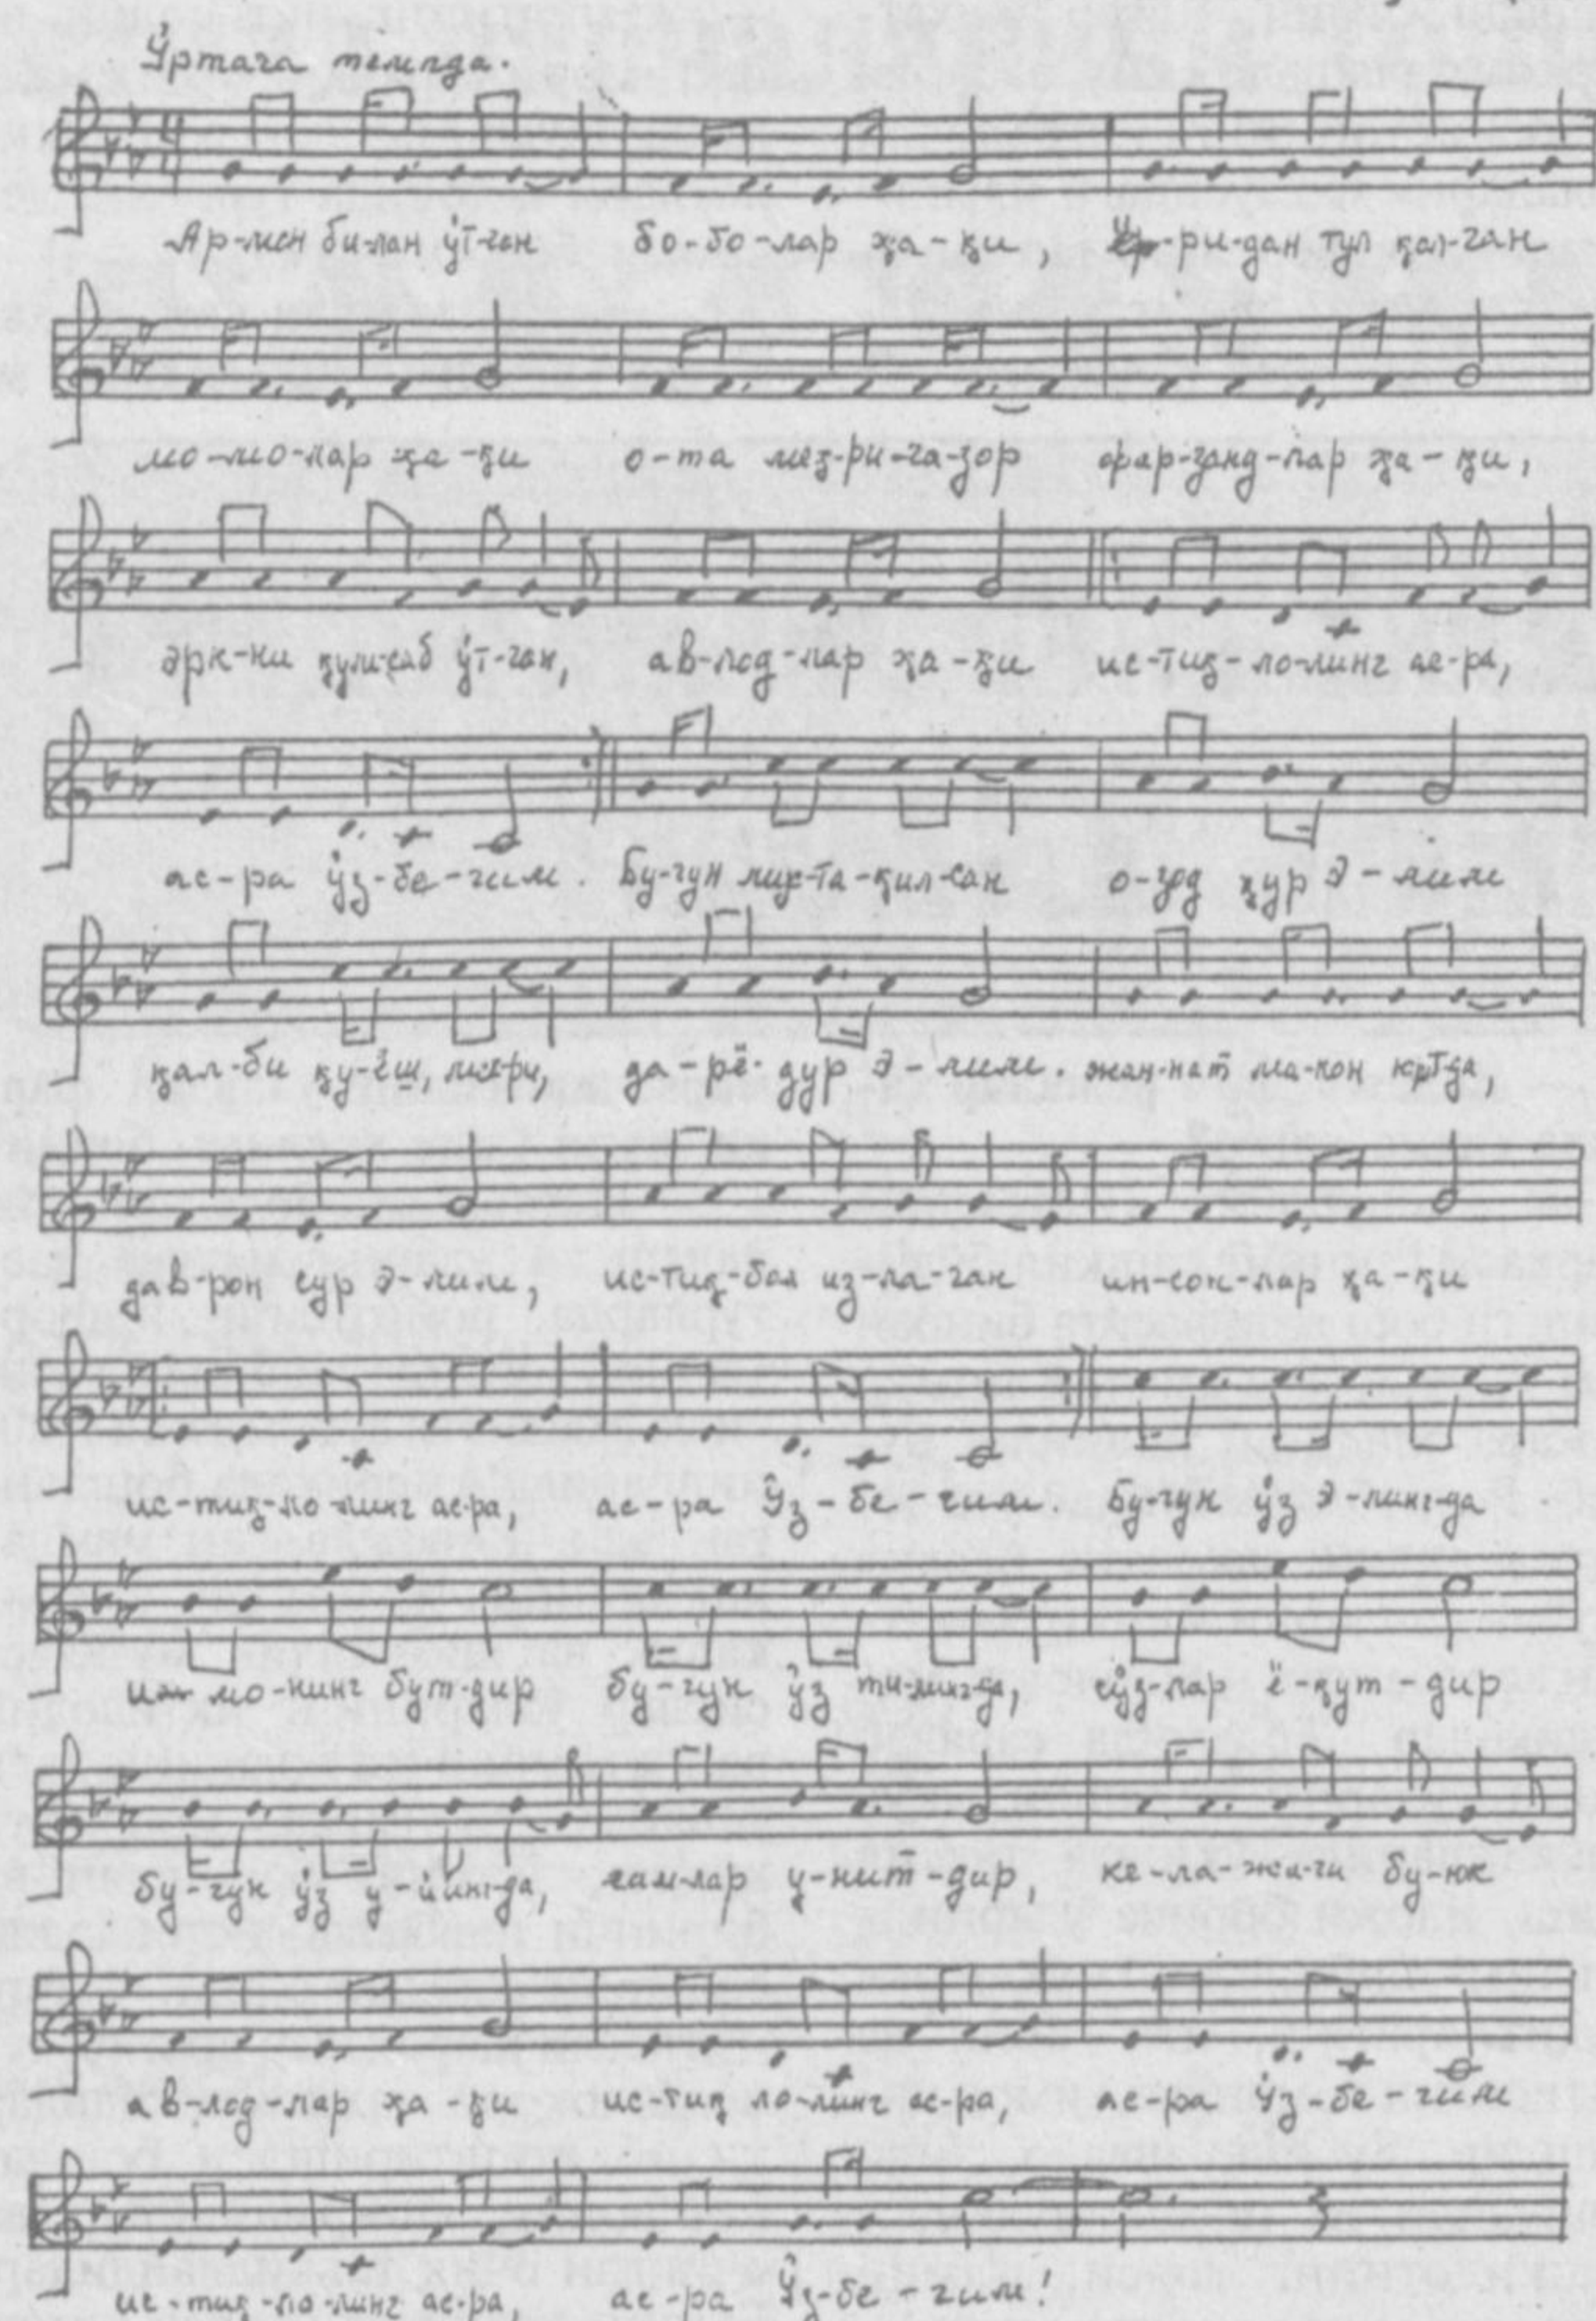 Ўртача темпда.
Ар-мон би-лан ўт-ган бо-бо-лар ҳа-қи, -ри-дан тул қол-ган
мо-мо-лар ҳа-қи о-та меҳ-ри-га-зор фар-занд-лар ҳа-қи,
эрк-ни қум-саб ўт-ган, ав-лод-лар ҳа-қи ис-тиқ-ло-линг ас-ра,
ас-ра ўз-бе-гим. Бу-гун мус-та-қил-сан о-зод ҳур Э-лим
қал-би қу-ёш, меҳ-ри, да-рё-дур Э-лим. жан-нат ма-кон юрт-да,
дав-рон сур Э-лим, ис-тиқ-бол из-ла-ган ин-сон-лар ҳа-қи
ис-тиқ-ло-линг ас-ра, ас-ра Ўз-бе-гим. Бу-гун ўз Э-линг-да
мо-нинг бут-дир бу-гун ўз ти-линг-да, сўз-лар ё-қут-дир
бу-гун ўз у-йинг-да, ғам-лар у-нит-дир, ке-ла-жа-ги бу-юк
ав-лод-лар ҳа-қи ис-тиқ ло-линг ас-ра, ас-ра Ўз-бе-гим
ис-тиқ-ло-линг ас-ра, ас-ра Ўз-бе-гим!